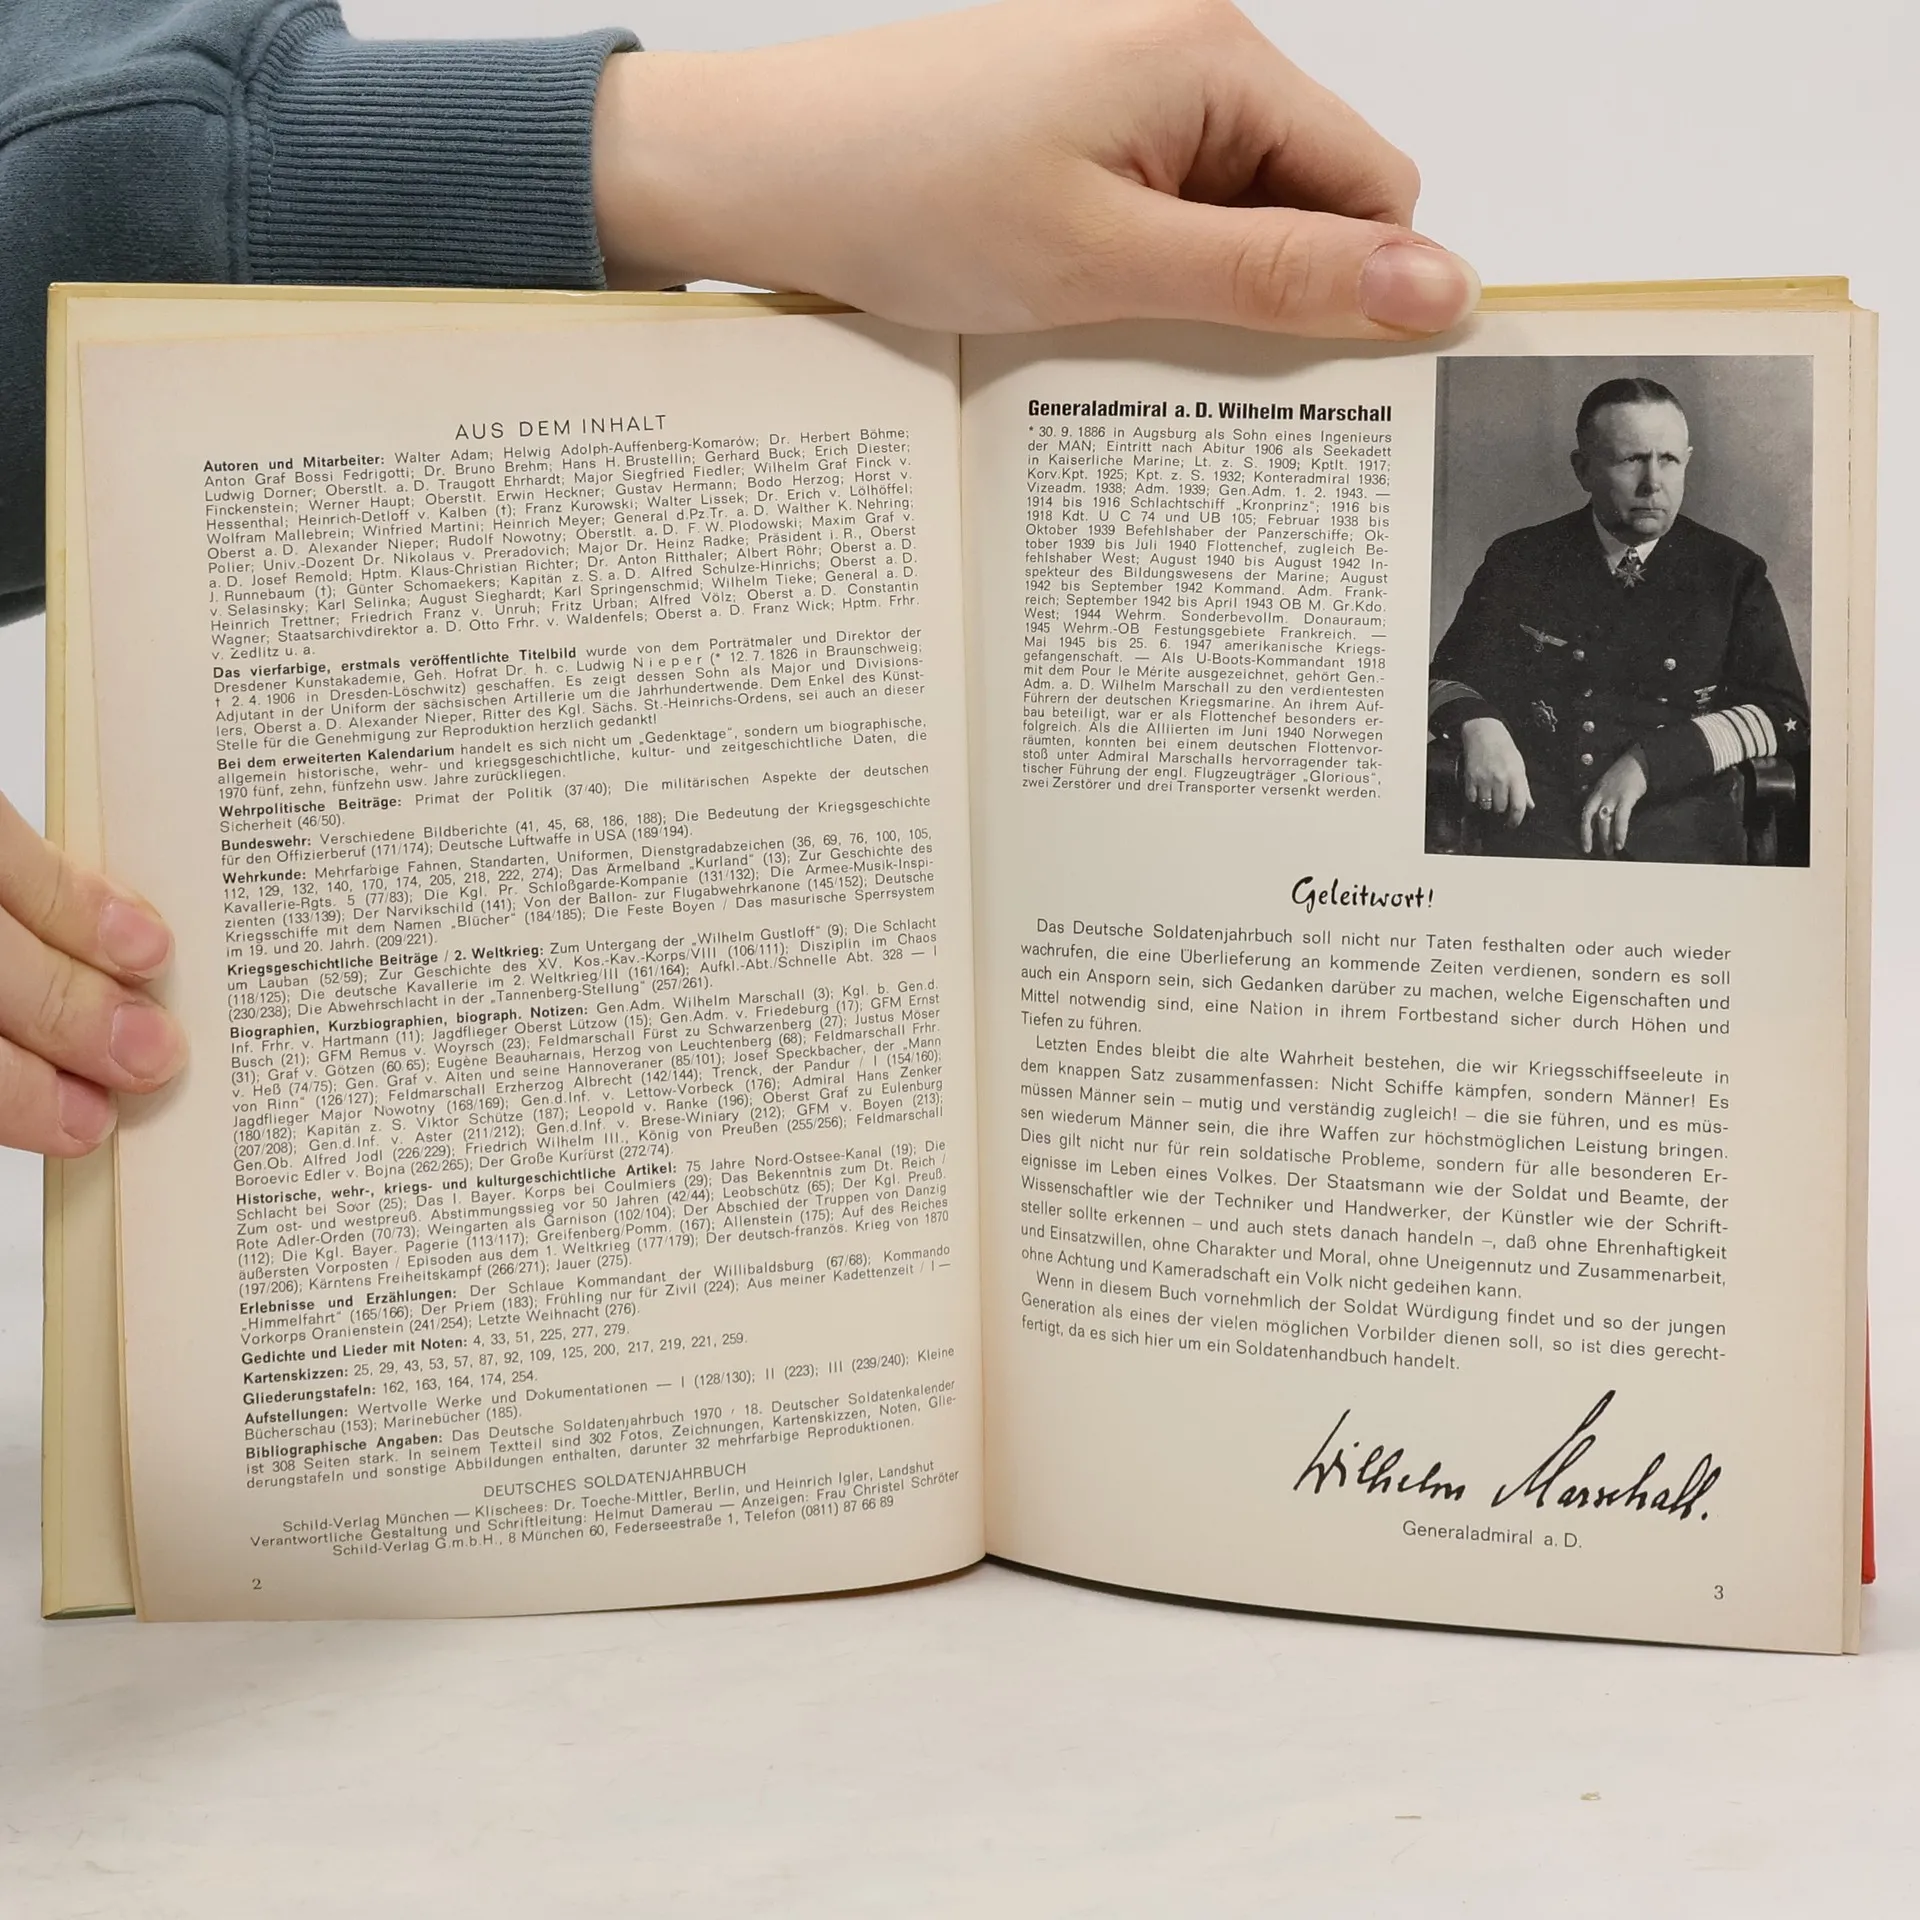 AUS DEM INHALT
Autoren und Mitarbeiter: Walter Adam; Helwig Adolph-Auffenberg-Komarów; Dr. Herbert Böhme;
Anton Graf Bossi Fedrigotti; Dr. Bruno Brehm; Hans H. Brustellin; Gerhard Buck; Erich Diester;
Ludwig Dorner; Oberstlt. a. D. Traugott Ehrhardt; Major Siegfried Fiedler; Wilhelm Graf Finck v.
Finckenstein; Werner Haupt; Oberstlt. Erwin Heckner; Gustav Hermann; Bodo Herzog; Horst v.
Hessenthal; Heinrich-Detloff v. Kalben (†); Franz Kurowski; Walter Lissek; Dr. Erich v. Lölhöffel;
Wolfram Mallebrein; Winfried Martini; Heinrich Meyer; General d.Pz.Tr. a. D. Walther K. Nehring;
Oberst a. D. Alexander Nieper; Rudolf Nowotny; Oberstlt. a. D. F. W. Plodowski; Maxim Graf v.
Polier; Univ.-Dozent Dr. Nikolaus v. Preradovich; Major Dr. Heinz Radke; Präsident i. R., Oberst
a. D. Josef Remold; Hptm. Klaus-Christian Richter; Dr. Anton Ritthaler; Albert Röhr; Oberst a. D.
J. Runnebaum (†); Günter Schomaekers; Kapitän z. S. a. D. Alfred Schulze-Hinrichs; Oberst a. D.
v. Selasinsky; Karl Selinka; August Sieghardt; Karl Springenschmid; Wilhelm Tieke; General a. D.
Heinrich Trettner; Friedrich Franz v. Unruh; Fritz Urban; Alfred Völz; Oberst a. D. Constantin
Wagner; Staatsarchivdirektor a. D. Otto Frhr. v. Waldenfels; Oberst a. D. Franz Wick; Hptm. Frhr.
v. Zedlitz u. a.
Das vierfarbige, erstmals veröffentlichte Titelbild wurde von dem Porträtmaler und Direktor der
Dresdener Kunstakademie, Geh. Hofrat Dr. h. c. Ludwig Nieper (* 12. 7. 1826 in Braunschweig;
† 2. 4. 1906 in Dresden-Löschwitz) geschaffen. Es zeigt dessen Sohn als Major und Divisions-
Adjutant in der Uniform der sächsischen Artillerie um die Jahrhundertwende. Dem Enkel des Künst-
lers, Oberst a. D. Alexander Nieper, Ritter des Kgl. Sächs. St.-Heinrichs-Ordens, sei auch an dieser
Stelle für die Genehmigung zur Reproduktion herzlich gedankt!
Bei dem erweiterten Kalendarium handelt es sich nicht um „Gedenktage", sondern um biographische,
allgemein historische, wehr- und kriegsgeschichtliche, kultur- und zeitgeschichtliche Daten, die
1970 fünf, zehn, fünfzehn usw. Jahre zurückliegen.
Wehrpolitische Beiträge: Primat der Politik (37/40); Die militärischen Aspekte der deutschen
Sicherheit (46/50).
Bundeswehr: Verschiedene Bildberichte (41, 45, 68, 186, 188); Die Bedeutung der Kriegsgeschichte
für den Offizierberuf (171/174); Deutsche Luftwaffe in USA (189/194).
Wehrkunde: Mehrfarbige Fahnen, Standarten, Uniformen, Dienstgradabzeichen (36, 69, 76, 100, 105,
112, 129, 132, 140, 170, 174, 205, 218, 222, 274); Das Ärmelband „Kurland" (13); Zur Geschichte des
Kavallerie-Rgts. 5 (77/83); Die Kgl. Pr. Schloßgarde-Kompanie (131/132); Die Armee-Musik-Inspi-
zienten (133/139); Der Narvikschild (141); Von der Ballon- zur Flugabwehrkanone (145/152); Deutsche
Kriegsschiffe mit dem Namen „Blücher" (184/185); Die Feste Boyen / Das masurische Sperrsystem
im 19. und 20. Jahrh. (209/221).
Kriegsgeschichtliche Beiträge / 2. Weltkrieg: Zum Untergang der „Wilhelm Gustloff" (9); Die Schlacht
um Lauban (52/59); Zur Geschichte des XV. Kos.-Kav.-Korps/VIII (106/111); Disziplin im Chaos
(118/125); Die deutsche Kavallerie im 2. Weltkrieg/III (161/164); Aufkl.-Abt./Schnelle Abt. 328 — I
(230/238); Die Abwehrschlacht in der „Tannenberg-Stellung" (257/261).
Biographien, Kurzbiographien, biograph. Notizen: Gen.Adm. Wilhelm Marschall (3); Kgl. b. Gen.d.
Inf. Frhr. v. Hartmann (11); Jagdflieger Oberst Lützow (15); Gen.Adm. v. Friedeburg (17); GFM Ernst
Busch (21); GFM Remus v. Woyrsch (23); Feldmarschall Fürst zu Schwarzenberg (27); Justus Möser
(31); Graf v. Götzen (60/65); Eugène Beauharnais, Herzog von Leuchtenberg (68); Feldmarschall Frhr.
v. Heß (74/75); Gen. Graf v. Alten und seine Hannoveraner (85/101); Josef Speckbacher, der „Mann
von Rinn" (126/127); Feldmarschall Erzherzog Albrecht (142/144); Trenck, der Pandur / I (154/160);
Jagdflieger Major Nowotny (168/169); Gen.d.Inf. v. Lettow-Vorbeck (176); Admiral Hans Zenker
(180/182); Kapitän z. S. Viktor Schütze (187); Leopold v. Ranke (196); Oberst Graf zu Eulenburg
(207/208); Gen.d.Inf. v. Aster (211/212); Gen.d.Inf. v. Brese-Winiary (212); GFM v. Boyen (213);
Gen.Ob. Alfred Jodl (226/229); Friedrich Wilhelm III., König von Preußen (255/256); Feldmarschall
Boroevic Edler v. Bojna (262/265); Der Große Kurfürst (272/74).
Historische, wehr-, kriegs- und kulturgeschichtliche Artikel: 75 Jahre Nord-Ostsee-Kanal (19); Die
Schlacht bei Soor (25); Das I. Bayer. Korps bei Coulmiers (29); Das Bekenntnis zum Dt. Reich /
Zum ost- und westpreuß. Abstimmungssieg vor 50 Jahren (42/44); Leobschütz (65); Der Kgl. Preuß.
Rote Adler-Orden (70/73); Weingarten als Garnison (102/104); Der Abschied der Truppen von Danzig
(112); Die Kgl. Bayer. Pagerie (113/117); Greifenberg/Pomm. (167); Allenstein (175); Auf des Reiches
äußersten Vorposten / Episoden aus dem 1. Weltkrieg (177/179); Der deutsch-französ. Krieg von 1870
(197/206); Kärntens Freiheitskampf (266/271); Jauer (275).
Erlebnisse und Erzählungen: Der Schlaue Kommandant der Willibaldsburg (67/68); Kommando
„Himmelfahrt" (165/166); Der Priem (183); Frühling nur für Zivil (224); Aus meiner Kadettenzeit / I —
Vorkorps Oranienstein (241/254); Letzte Weihnacht (276).
Gedichte und Lieder mit Noten: 4, 33, 51, 225, 277, 279.
Kartenskizzen: 25, 29, 43, 53, 57, 87, 92, 109, 125, 200, 217, 219, 221, 259.
Gliederungstafeln: 162, 163, 164, 174, 254.
Aufstellungen: Wertvolle Werke und Dokumentationen — I (128/130); II (223); III (239/240); Kleine
Bücherschau (153); Marinebücher (185).
Bibliographische Angaben: Das Deutsche Soldatenjahrbuch 1970 / 18. Deutscher Soldatenkalender
ist 308 Seiten stark. In seinem Textteil sind 302 Fotos, Zeichnungen, Kartenskizzen, Noten, Glie-
derungstafeln und sonstige Abbildungen enthalten, darunter 32 mehrfarbige Reproduktionen.
DEUTSCHES SOLDATENJAHRBUCH
Schild-Verlag München — Klischees: Dr. Toeche-Mittler, Berlin, und Heinrich Igler, Landshut
Verantwortliche Gestaltung und Schriftleitung: Helmut Damerau — Anzeigen: Frau Christel Schröter
Schild-Verlag G.m.b.H., 8 München 60, Federseestraße 1, Telefon (0811) 87 66 89
2
Generaladmiral a. D. Wilhelm Marschall
* 30. 9. 1886 in Augsburg als Sohn eines Ingenieurs
der MAN; Eintritt nach Abitur 1906 als Seekadett
in Kaiserliche Marine; Lt. z. S. 1909; Kptlt. 1917;
Korv.Kpt. 1925; Kpt. z. S. 1932; Konteradmiral 1936;
Vizeadm. 1938; Adm. 1939; Gen.Adm. 1. 2. 1943. —
1914 bis 1916 Schlachtschiff „Kronprinz"; 1916 bis
1918 Kdt. U C 74 und UB 105; Februar 1938 bis
Oktober 1939 Befehlshaber der Panzerschiffe; Ok-
tober 1939 bis Juli 1940 Flottenchef, zugleich Be-
fehlshaber West; August 1940 bis August 1942 In-
spekteur des Bildungswesens der Marine; August
1942 bis September 1942 Kommand. Adm. Frank-
reich; September 1942 bis April 1943 OB M. Gr.Kdo.
West; 1944 Wehrm. Sonderbevollm. Donauraum;
1945 Wehrm.-OB Festungsgebiete Frankreich. —
Mai 1945 bis 25. 6. 1947 amerikanische Kriegs-
gefangenschaft. — Als U-Boots-Kommandant 1918
mit dem Pour le Mérite ausgezeichnet, gehört Gen.-
Adm. a. D. Wilhelm Marschall zu den verdientesten
Führern der deutschen Kriegsmarine. An ihrem Auf-
bau beteiligt, war er als Flottenchef besonders er-
folgreich. Als die Alliierten im Juni 1940 Norwegen
räumten, konnten bei einem deutschen Flottenvor-
stoß unter Admiral Marschalls hervorragender tak-
tischer Führung der engl. Flugzeugträger „Glorious",
zwei Zerstörer und drei Transporter versenkt werden.
Geleitwort!
Das Deutsche Soldatenjahrbuch soll nicht nur Taten festhalten oder auch wieder
wachrufen, die eine Überlieferung an kommende Zeiten verdienen, sondern es soll
auch ein Ansporn sein, sich Gedanken darüber zu machen, welche Eigenschaften und
Mittel notwendig sind, eine Nation in ihrem Fortbestand sicher durch Höhen und
Tiefen zu führen.
Letzten Endes bleibt die alte Wahrheit bestehen, die wir Kriegsschiffseeleute in
dem knappen Satz zusammenfassen: Nicht Schiffe kämpfen, sondern Männer! Es
müssen Männer sein – mutig und verständig zugleich! – die sie führen, und es müs-
sen wiederum Männer sein, die ihre Waffen zur höchstmöglichen Leistung bringen.
Dies gilt nicht nur für rein soldatische Probleme, sondern für alle besonderen Er-
eignisse im Leben eines Volkes. Der Staatsmann wie der Soldat und Beamte, der
Wissenschaftler wie der Techniker und Handwerker, der Künstler wie der Schrift-
steller sollte erkennen – und auch stets danach handeln –, daß ohne Ehrenhaftigkeit
und Einsatzwillen, ohne Charakter und Moral, ohne Uneigennutz und Zusammenarbeit,
ohne Achtung und Kameradschaft ein Volk nicht gedeihen kann.
Wenn in diesem Buch vornehmlich der Soldat Würdigung findet und so der jungen
Generation als eines der vielen möglichen Vorbilder dienen soll, so ist dies gerecht-
fertigt, da es sich hier um ein Soldatenhandbuch handelt.
Wilhelm Marschall.
Generaladmiral a. D.
3